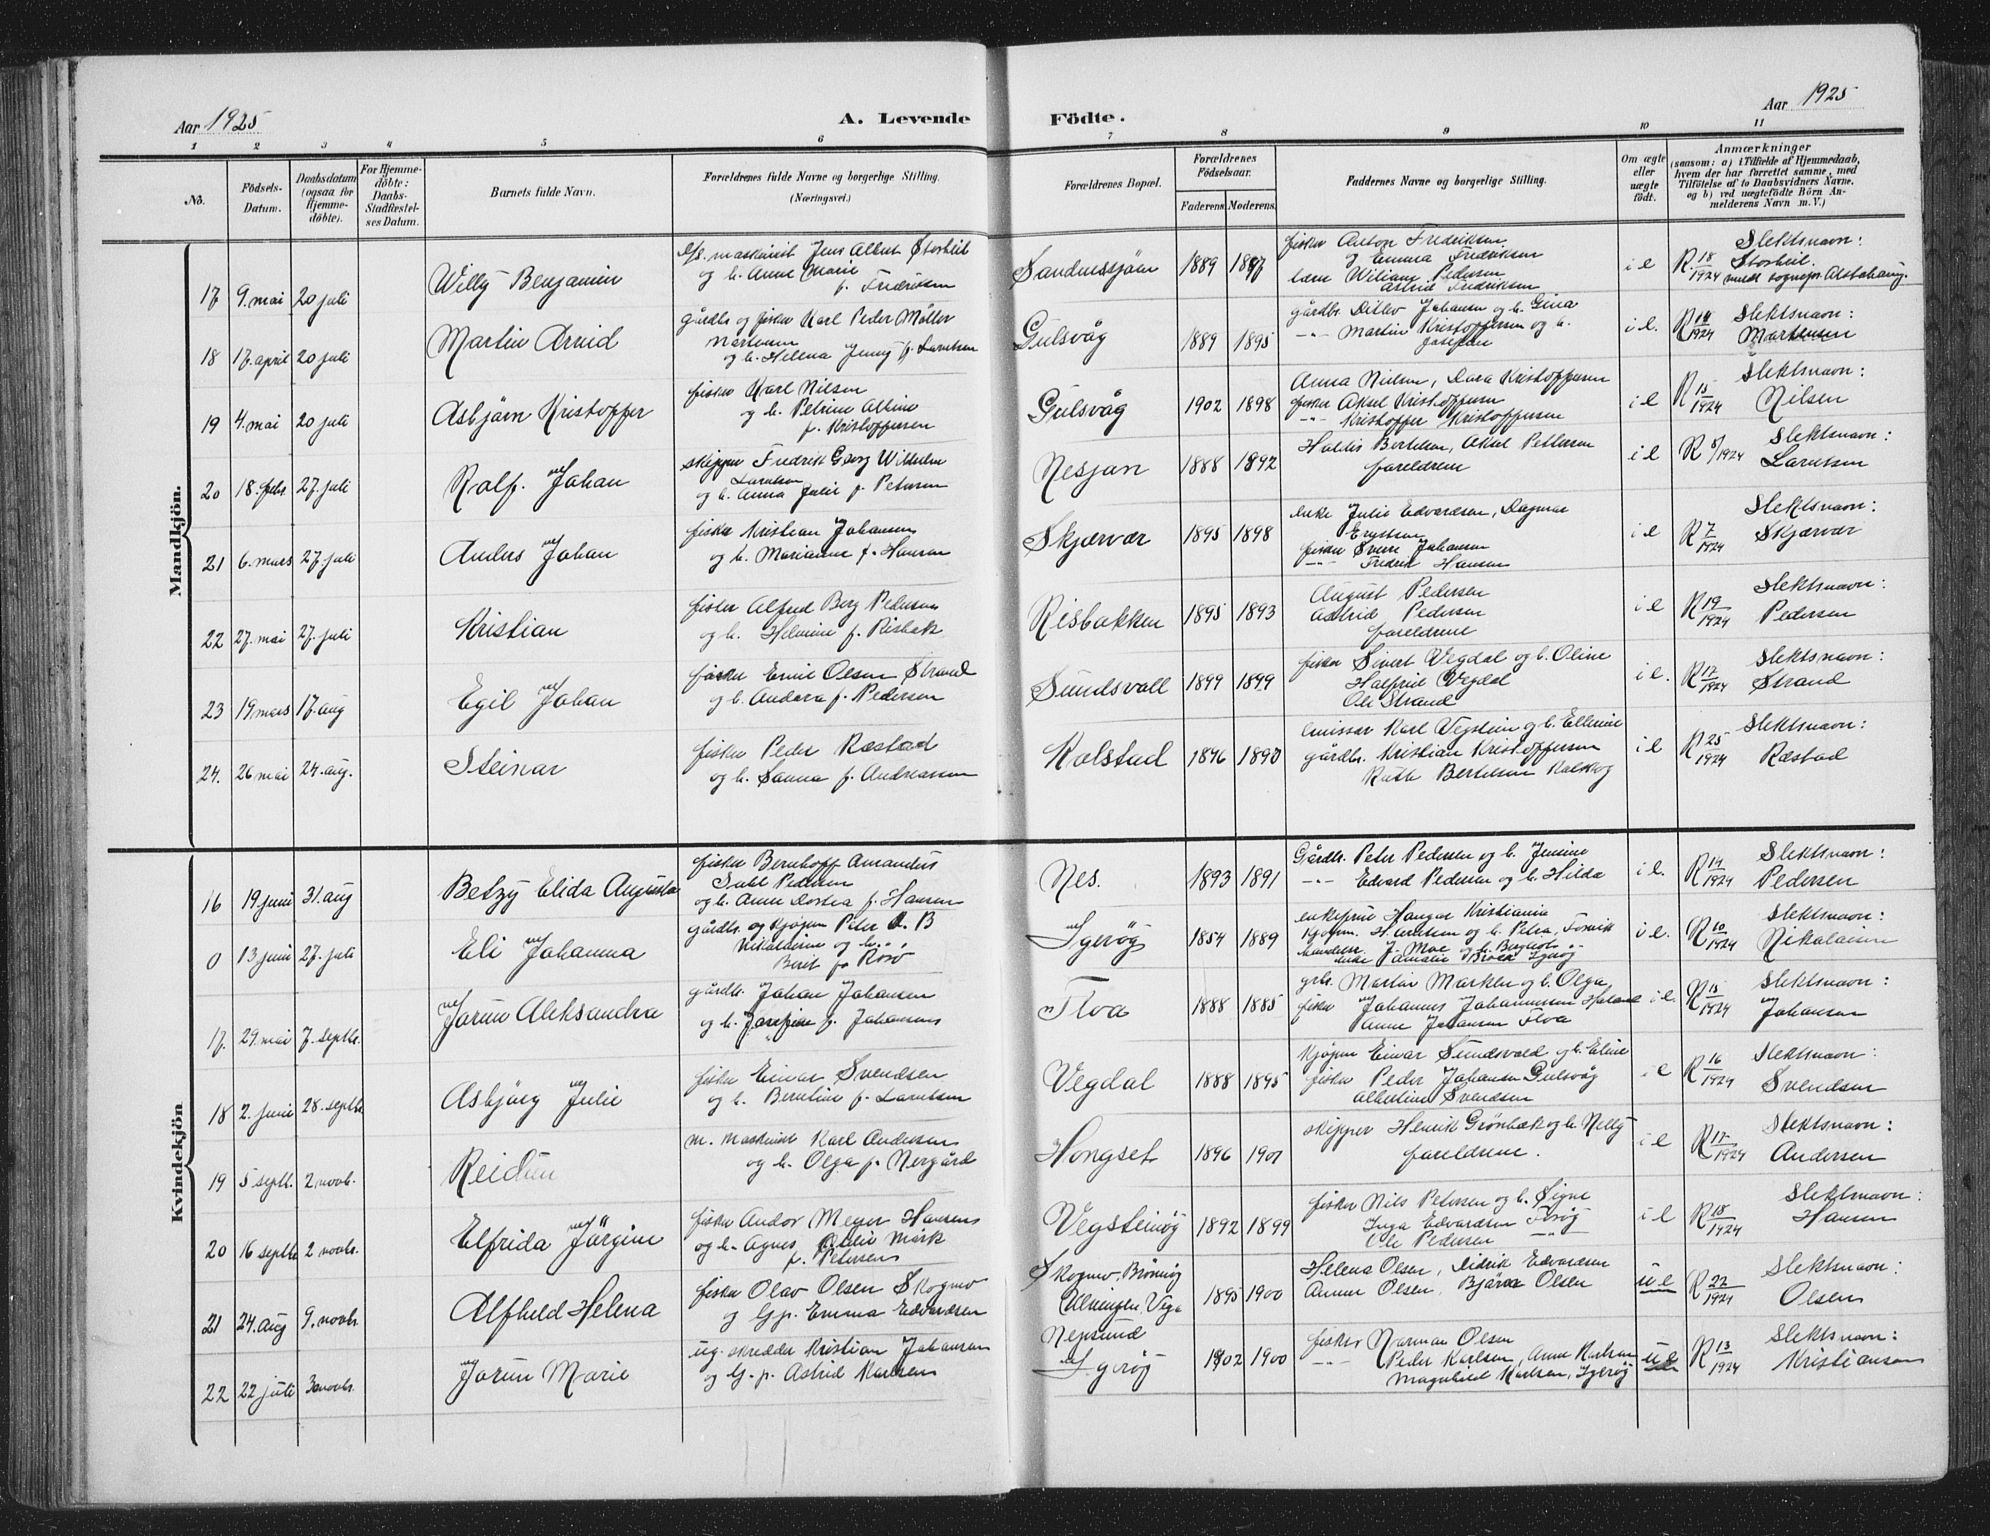 Aar 1925
A. Levende Födte.
Aar 1925
1 2 3 4 5 6 7 8 9 10 11
No.
Födsels-Datum.
Daabsdatum (ogsaa for Hjemme-döbte).
For Hjemme-döbte: Daabs-Stadfæstel-ses Datum.
Barnets fulde Navn.
Forældrenes fulde Navne og borgerlige Stilling. (Næringsvei.)
Forældrenes Bopæl.
Forældrenes Födselsaar.
Faderens Moderens.
Faddernes Navne og borgerlige Stilling.
Om ægte eller uægte födt.
Anmærkninger
(saasom: a) i Tilfælde af Hjemmedaab, hvem der har forrettet samme, med Tilföielse af to Daabsvidners Navne, og b) ved uægtefödte Börn An-melderens Navn m. V.)
Mandkjön.
17 9. mai 20 juli Willy Benjamin
maskinist Jens Albert Storheil
og h. Anne Marie
f. Fredriksen
Sandnessjöen 1889 1897
fisker Anton Fredriksen
Emma Fredriksen
Wiliam Pedersen
Astrid Fredriksen
i e R 18/1924
Slektsnavn:
Storheil.
sognepr. Alstahaug.
18 17. april 20 juli Martin Arvid
gårdbr. og fisker Karl Peder Möller
Martensen
og h. Helena Jenny f. Lorentsen
Gulsvåg 1889 1895
gårdbr. Ditlev Johansen og h. Gina
-"- Martin Kristoffersen og h.
Josefine
i e. R 14/1924
Slektsnavn:
Martensen
19 4. mai 20 juli Asbjörn Kristoffer
fisker Karl Nilsen
og h. Petrine Albine
f. Kristoffersen
Gulsvåg 1902 1898
Anna Nielsen, Dora Kristoffersen
fisker Aksel Kristoffersen
-"- Kristoffer Kristoffersen
i e R 15/1924
Slektsnavn:
Nilsen
20 18. febr. 27. juli Rolf Johan
skipper Fredrik Georg Wilhelm
Lorentsen
og h. Anna Julie f. Petersen
Nesjan 1888 1892
Haldis Bertelsen, Aksel Pettersen
foreldrene
i e R 5/1924
Slektsnavn:
Lorentsen
21 6. mars 27. juli Anders Johan
fisker Kristian Johansen
og h. Marianne f. Hansen
Skjærvær 1895 1898
enke Julie Edvardsen, Dagmar
fisker Sverre Johansen
-"- Fredrik Hansen
i e R 7/1924
Slektsnavn:
Skjærvær
22 27. mai 27. juli Kristian
fisker Alfred Berg Pedersen
og h. Helmine f. Risbak
Risbakken 1895 1893
August Pedersen
Astrid Pedersen
foreldrene
i e R 19/1924
Slektsnavn:
Pedersen
23 19. mars 17. aug Egil Johan
fisker Emil Olsen Strand
og h. Andora f. Pedersen
Sundsvoll 1899 1899
fisker Sivert Vegdal og h. Oline
Halfrid Vegdal
Ole Strand
i e. R 17/1924
Slektsnavn:
Strand
24. 26 mai 24. aug. Steinar
fisker Peder Ræstad
og h. Sanna f. Andreassen
Kolstad 1896 1890
emissær Karl Vegstein og h. Elterine
gårdbr. Kristian Kristoffersen
Ruth Bertelsen
i e R 25/1924
Slektsnavn:
Ræstad
Kvindekjön
16 19 juni 31. aug Betzy Elida Augusta
fisker Bernhoff Amandus
Pedersen
og h. Anne Dortea f. Hansen
Nes. 1893 1891
Gårdbr. Peter Pedersen og h. Jensine
-"- Edvard Pedersen og h. Hilda
i e. R 14/1924
Slektsnavn:
Pedersen
0 13 juni 27. juli Eli Johanna
gårdbr. og kjöpm Peter B
Nikolaisen og h.
Berit f. Rosö
Igeröy 1854 1889
i e. R 10/1924
Slektsnavn:
Nikolaisen
17. 29. mai 7. septbr. Jorun Aleksandra
gårdbr. Johan Johansen
og h. Josefine f. Johansen
Floa 1888 1885
Martin Marken og h. Olga
fisker Johannes Johannessen
Anne Johansen Floa
i e. R 15/1924
Slektsnavn:
Johansen
18 2. juni 28. septbr Asbjörg Julie
fisker Einar Svendsen
og h. Berntine f. Lorentsen
Vegdal 1888 1895
kjöpm Einar Sundsvold og h. Eline
fisker Peder Johansen Gulsvåg
Albertine Svendsen
i e R 16/1924
Slektsnavn:
Svendsen
19 5 septb. 2. novb. Reidun
m. maskinist Karl Andersen
og h. Olga f. Nergård
Hongset 1896 1901
skipper Henrik Grönbæk og h. Nelly
foreldrene.
i e R 17/1924
Slektsnavn:
Andersen
20 16 septbr 2 novbr. Elfrida Jörgine
fisker Andor Meyer Hansen
og h. Agnes Mörk
f. Petersen
Vegsteinöy 1892 1899
fisker Nils Petersen og h. Signe
Inga Edvardsen
Ole Pedersen -"-
i e R 18/1924
Slektsnavn:
Hansen
21 24. aug 9. novbr. Alfhild Helena
fisker Olav Olsen Skogmo
og Gp. Emma Edvardsen
Skogmo, Brönnöy
Vega 1895 1900
Helena Olsen, Didrik Edvardsen
Anne Olsen, Bjarne Olsen
u e R 22/1924
Slektsnavn:
Olsen
22 22 juli novbr. Jorun Marie
ug. skredder Kristian Johansen
og G. p. Astrid Karlsen
Nepsund
Igeröy 1902 1900
fisker Norman Olsen
-"- Peder Karlsen, Anne Karlsen
Magnhild Karlsen, Igeröy
u e R 13/1924
Slektsnavn:
Kristiansen